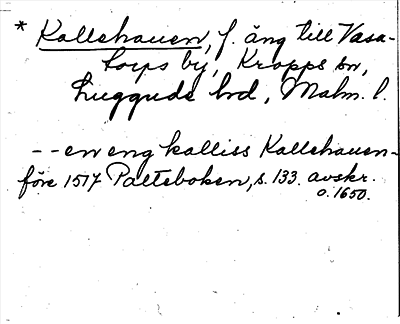 * Kallehauen, f. äng till Vasa-
torps by, Kropps sn,
Luggude hd, Malm. l.
-- en eng kalliss Kallehauen -
före 1517 Palteboken, s. 133. avskr.
o. 1650.